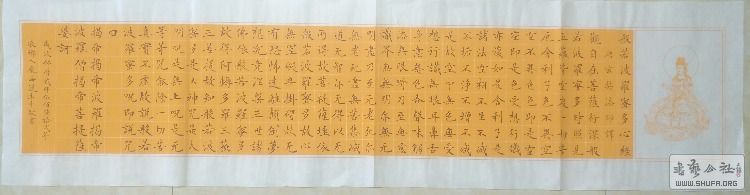 般若波羅蜜多心經
唐玄奘法師譯
觀自在菩薩行深般
若波羅蜜多時照見
五蘊皆空度一切苦
厄舍利子色不異空
空不異色色即是空
空即是色受想行識
亦復如是舍利子是
諸法空相不生不滅
不垢不淨不增不減
是故空中無色無受
想行識無眼耳鼻舌
身意無色聲香味觸
法無眼界乃至無意
識界無無明亦無無
明盡乃至无老死亦
無老死盡無苦集滅
道无智亦无得以无
所得故菩提薩埵依
般若波羅蜜多故心
無罣礙無罣礙故无
有恐怖遠離顛倒夢
想究竟涅槃三世諸
佛依般若波羅蜜多
故得阿耨多羅三藐
三菩提故知般若波
羅蜜多是大神咒是大
明咒是無上咒是无
等等咒能除一切苦
真實不虛故說般若
波羅蜜多咒即說咒
曰
揭帝揭帝波羅揭帝
波羅僧揭帝菩提薩
婆訶
書法公社
WWW.SHUFA.ORG